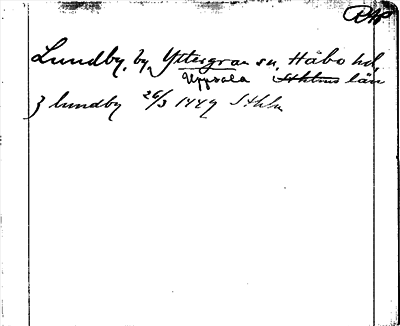 Lundby, by, Yttergran sn, Håbo hd,
Uppsala Sthlms län
j lundby 26/3 1449 Sthlm